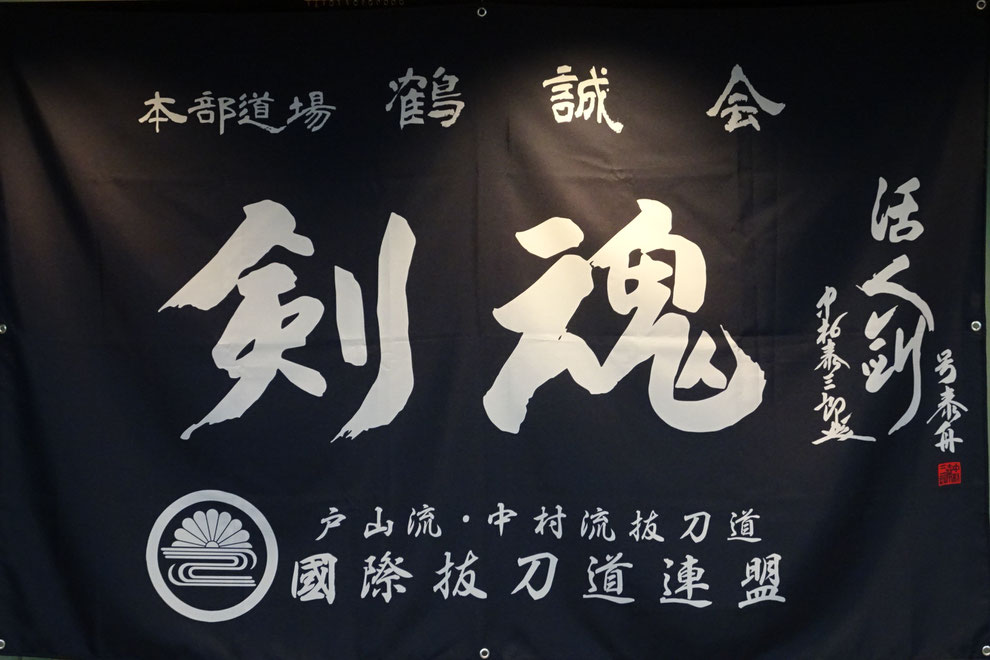 本部道場 鶴誠会
剣魂
活人剣
号泰舟
中村泰三郎
戸山流・中村流抜刀道
國際抜刀道連盟